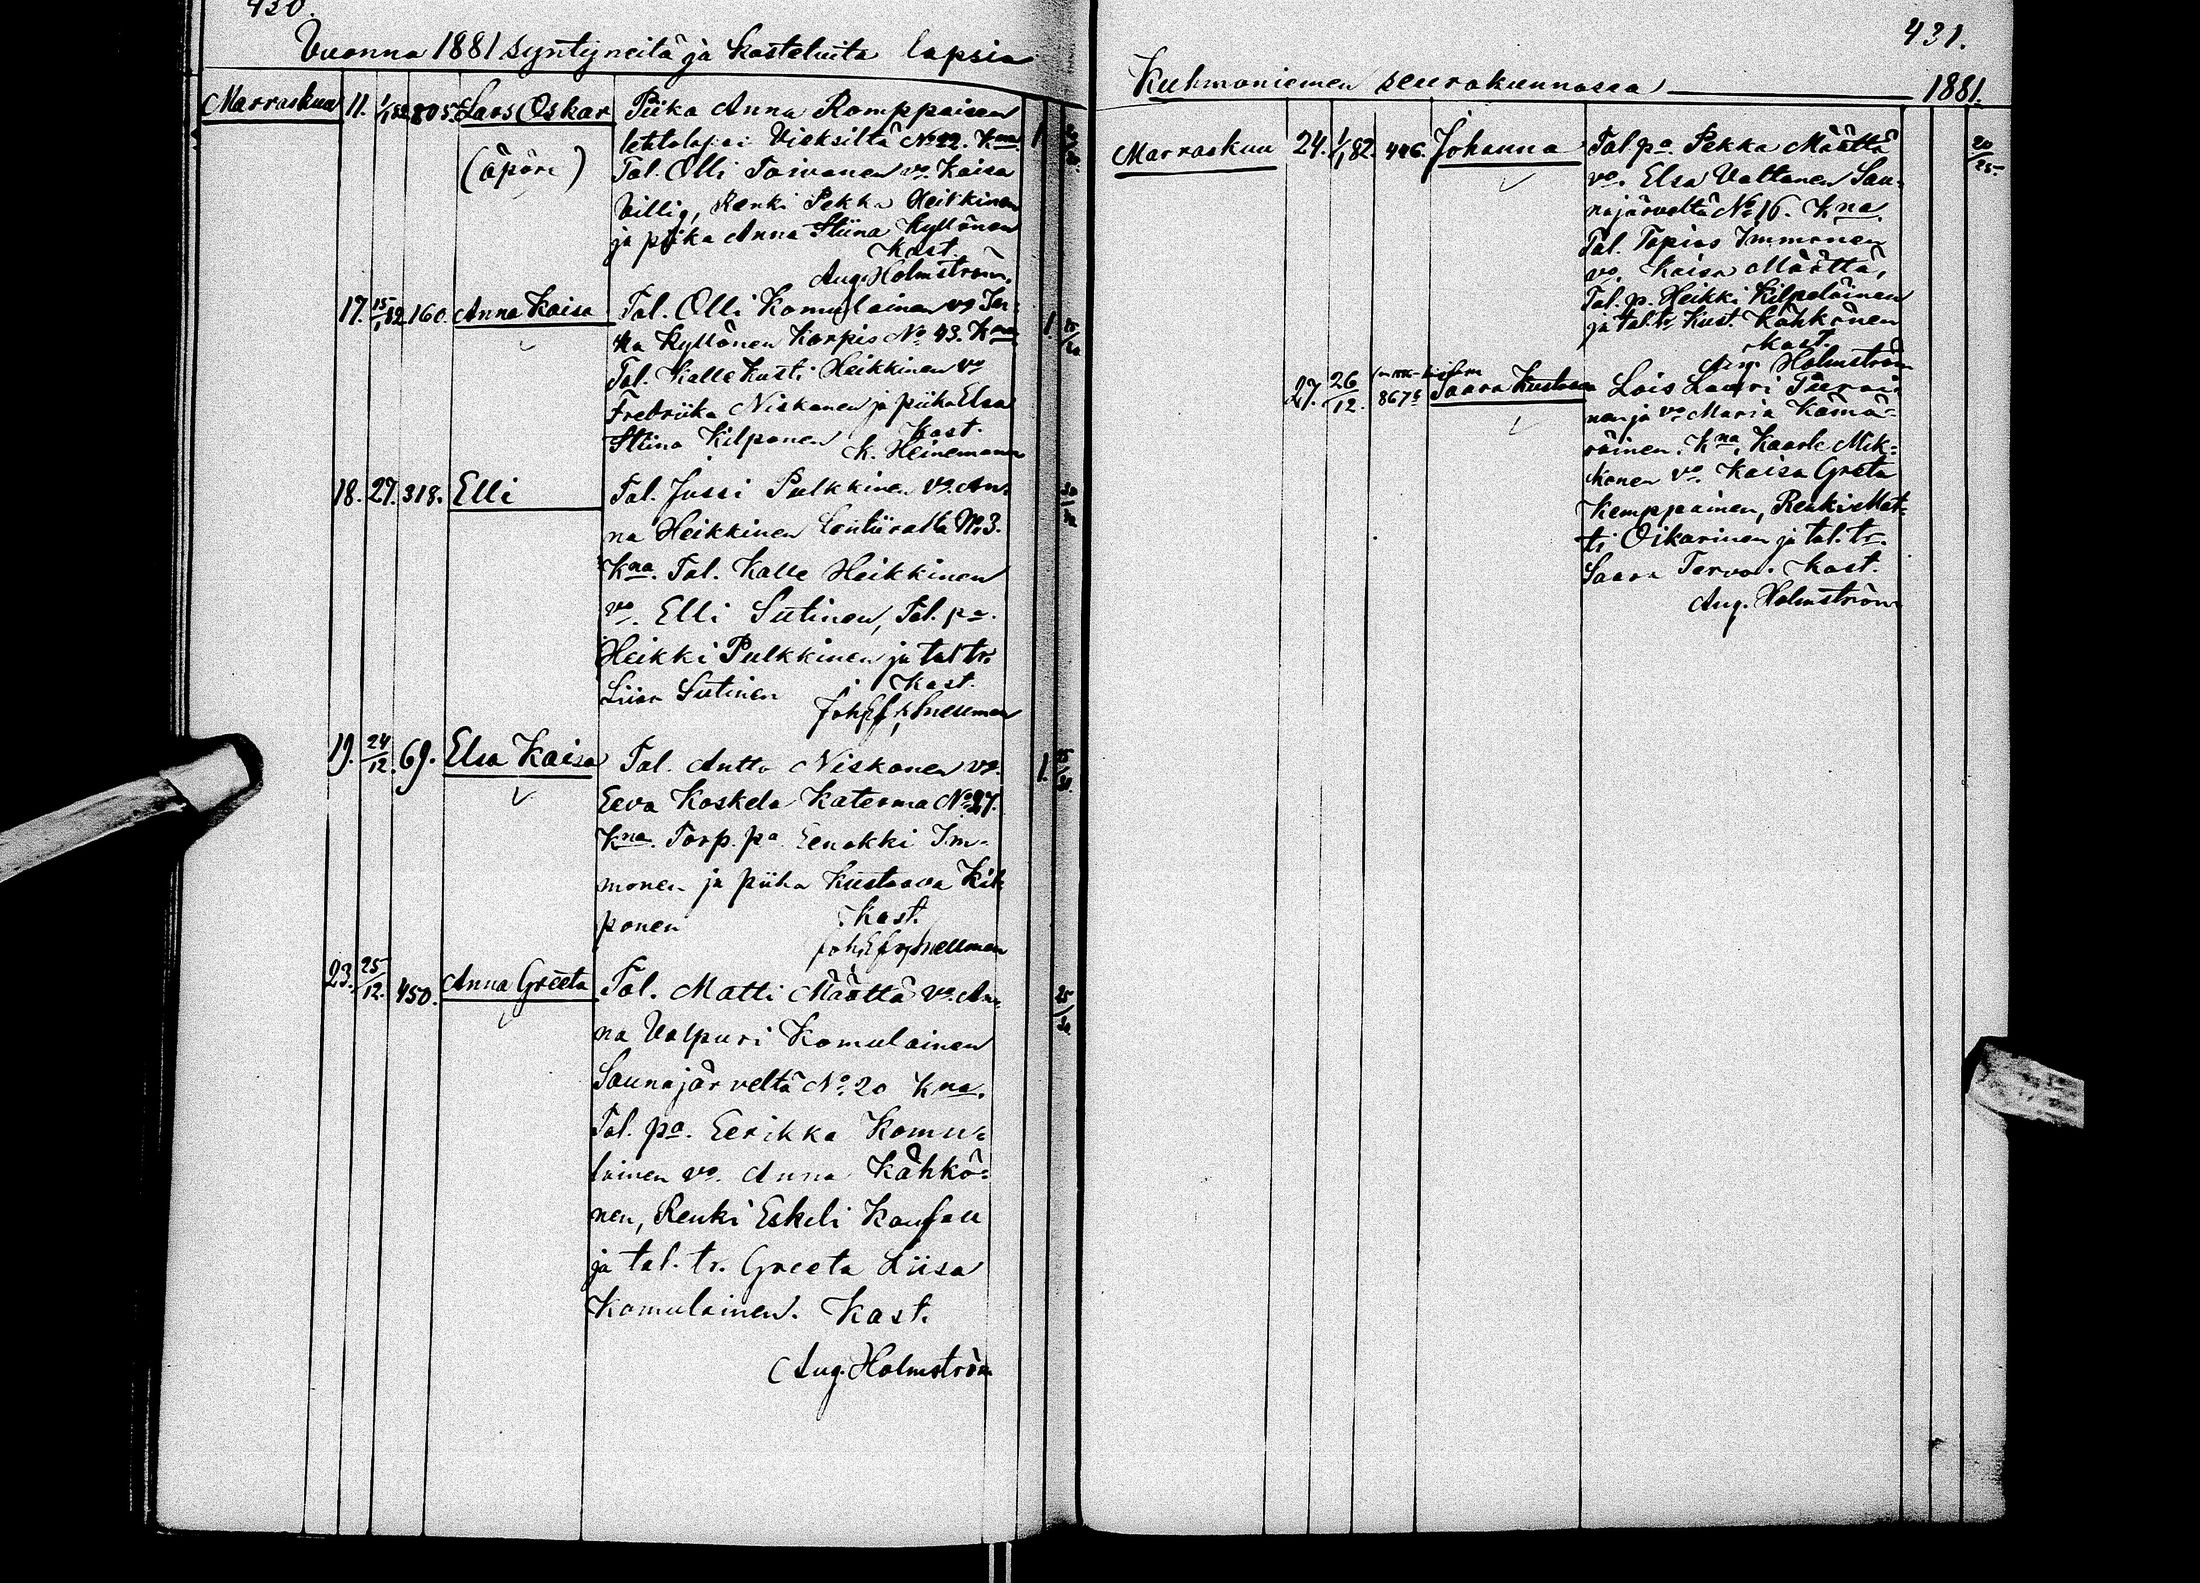 430.
Vuonna 1881 syntyneitä ja kastetuita lapsia
Marraskuu 11. 1/1 82 805 Lars Oskar Piika Anna Romppaisen
lehtolapsi Vieksiltä No 22. Kna
(äpärä) Tal. Olli Toivanen vo. Kaisa
Villig, Renki Pekka Heikkinen
ja piika Anna Stiina Kyllönen
Kast.
Aug. Holmström.
17. 15/1 82 160. Anna Kaisa Tal. Olli Komulainen vo
ka Kyllönen Korpis No 43. Kna
Tal. Kalle Kusti Heikkinen vo
Fredriika Niskanen ja piika Elsa
Stiina Kilponen Kast.
K. Heinemann
18. 27. 318. Elli Tal. Jussi Pulkkinen vo. An-
na Heikkinen Lentiiralta No 3.
Kna. Tal. Kalle Heikkinen
vo. Elli Sutinen, Tal. pa.
Heikki Pulkkinen ja tal tr.
Liisa Sutinen Kast.
Snellman
19. 24/12. 69. Elsa Kaisa Tal. Antto Niskanen vo. 1.
Eeva Koskela Katerma No 27.
Kna. Torp. pa. Eenokki Im-
monen ja piika Kustaava Kil-
ponen Kast.
Snellman
23. 25/12. 450. Anna Greeta Tal. Matti Määttä vo. An-
na Valpuri Komulainen
Saunajärveltä No. 20 Kna.
Tal. pa. Eerikka Komu-
lainen vo. Anna Kähkö-
nen, Renki Eskeli
ja tal. tr. Greeta Liisa
Komulainen. Kast.
Aug. Holmström
431.
Kuhmoniemen seurakunnassa 1881.
Marraskuu 24. 1/1 82. 446. Johanna Tal pa. Pekka Määttä
vo. Elsa Valtanen Sau-
najärveltä No 16. Kna.
Tal. Topias Immonen
vo. Kaisa Määttä,
Tal. p. Heikki Kilpeläinen
ja tal. tr. Kust. Kähkönen
Kast.
Aug. Holmström
27. 26/12. 867 Saara Kustaava Lois Lauri
nen ja vo Maria Kämä-
räinen. Kna. Kaarle Mik-
konen vo. Kaisa Greta
Kemppainen, Renki Mat-
ti Oikarinen ja tal. tr.
Saara Tervo. Kast.
Aug. Holmström